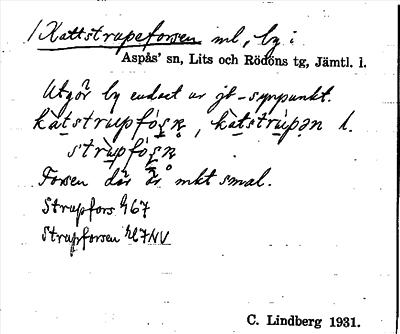 /Kattstrupeforsen ml, by i
Aspås' sn, Lits och Rödöns tg, Jämtl. l.
Utgör by endast ur jb-synpunkt.
kàtstrupfo̱ṣṇ, kàtstrùpən l.
strùpfo̱ṣṇ
Forsen där är mkt smal.
Strupfors
Strupforsen
C. Lindberg 1931.